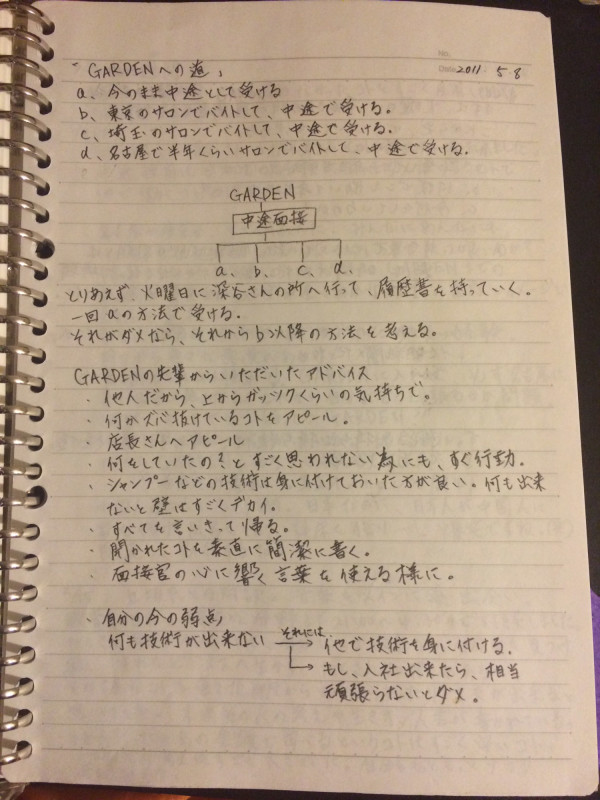 2011 5.8
「GARDENへの道」
a、今のまま中途として受ける
b、東京のサロンでバイトして、中途で受ける。
c、埼玉のサロンでバイトして、中途で受ける。
d、名古屋で半年くらいサロンでバイトして、中途で受ける。
GARDEN
中途面接
a、 b、 c、 d、
とりあえず、火曜日に深谷さんの所へ行って、履歴書を持っていく。
一回aの方法で受ける。
それがダメなら、それからb以降の方法を考える。
GARDENの先輩からいただいたアドバイス
・他人だから、上からガッツクくらいの気持ちで。
・何かズバ抜けているコトをアピール。
・店長さんへアピール
・何をしていたの？とすごく思われない為にも、すぐ行動。
・シャンプーなどの技術は身に付けておいた方が良い。何も出来
ないと壁はすごくデカイ。
・すべてを言いきって帰る。
・聞かれたコトを素直に簡潔に書く。
・面接官の心に響く言葉を使える様に。
・自分の今の弱点
何も技術が出来ない それには 他で技術を身に付ける。
もし、入社出来たら、相当
頑張らないとダメ。